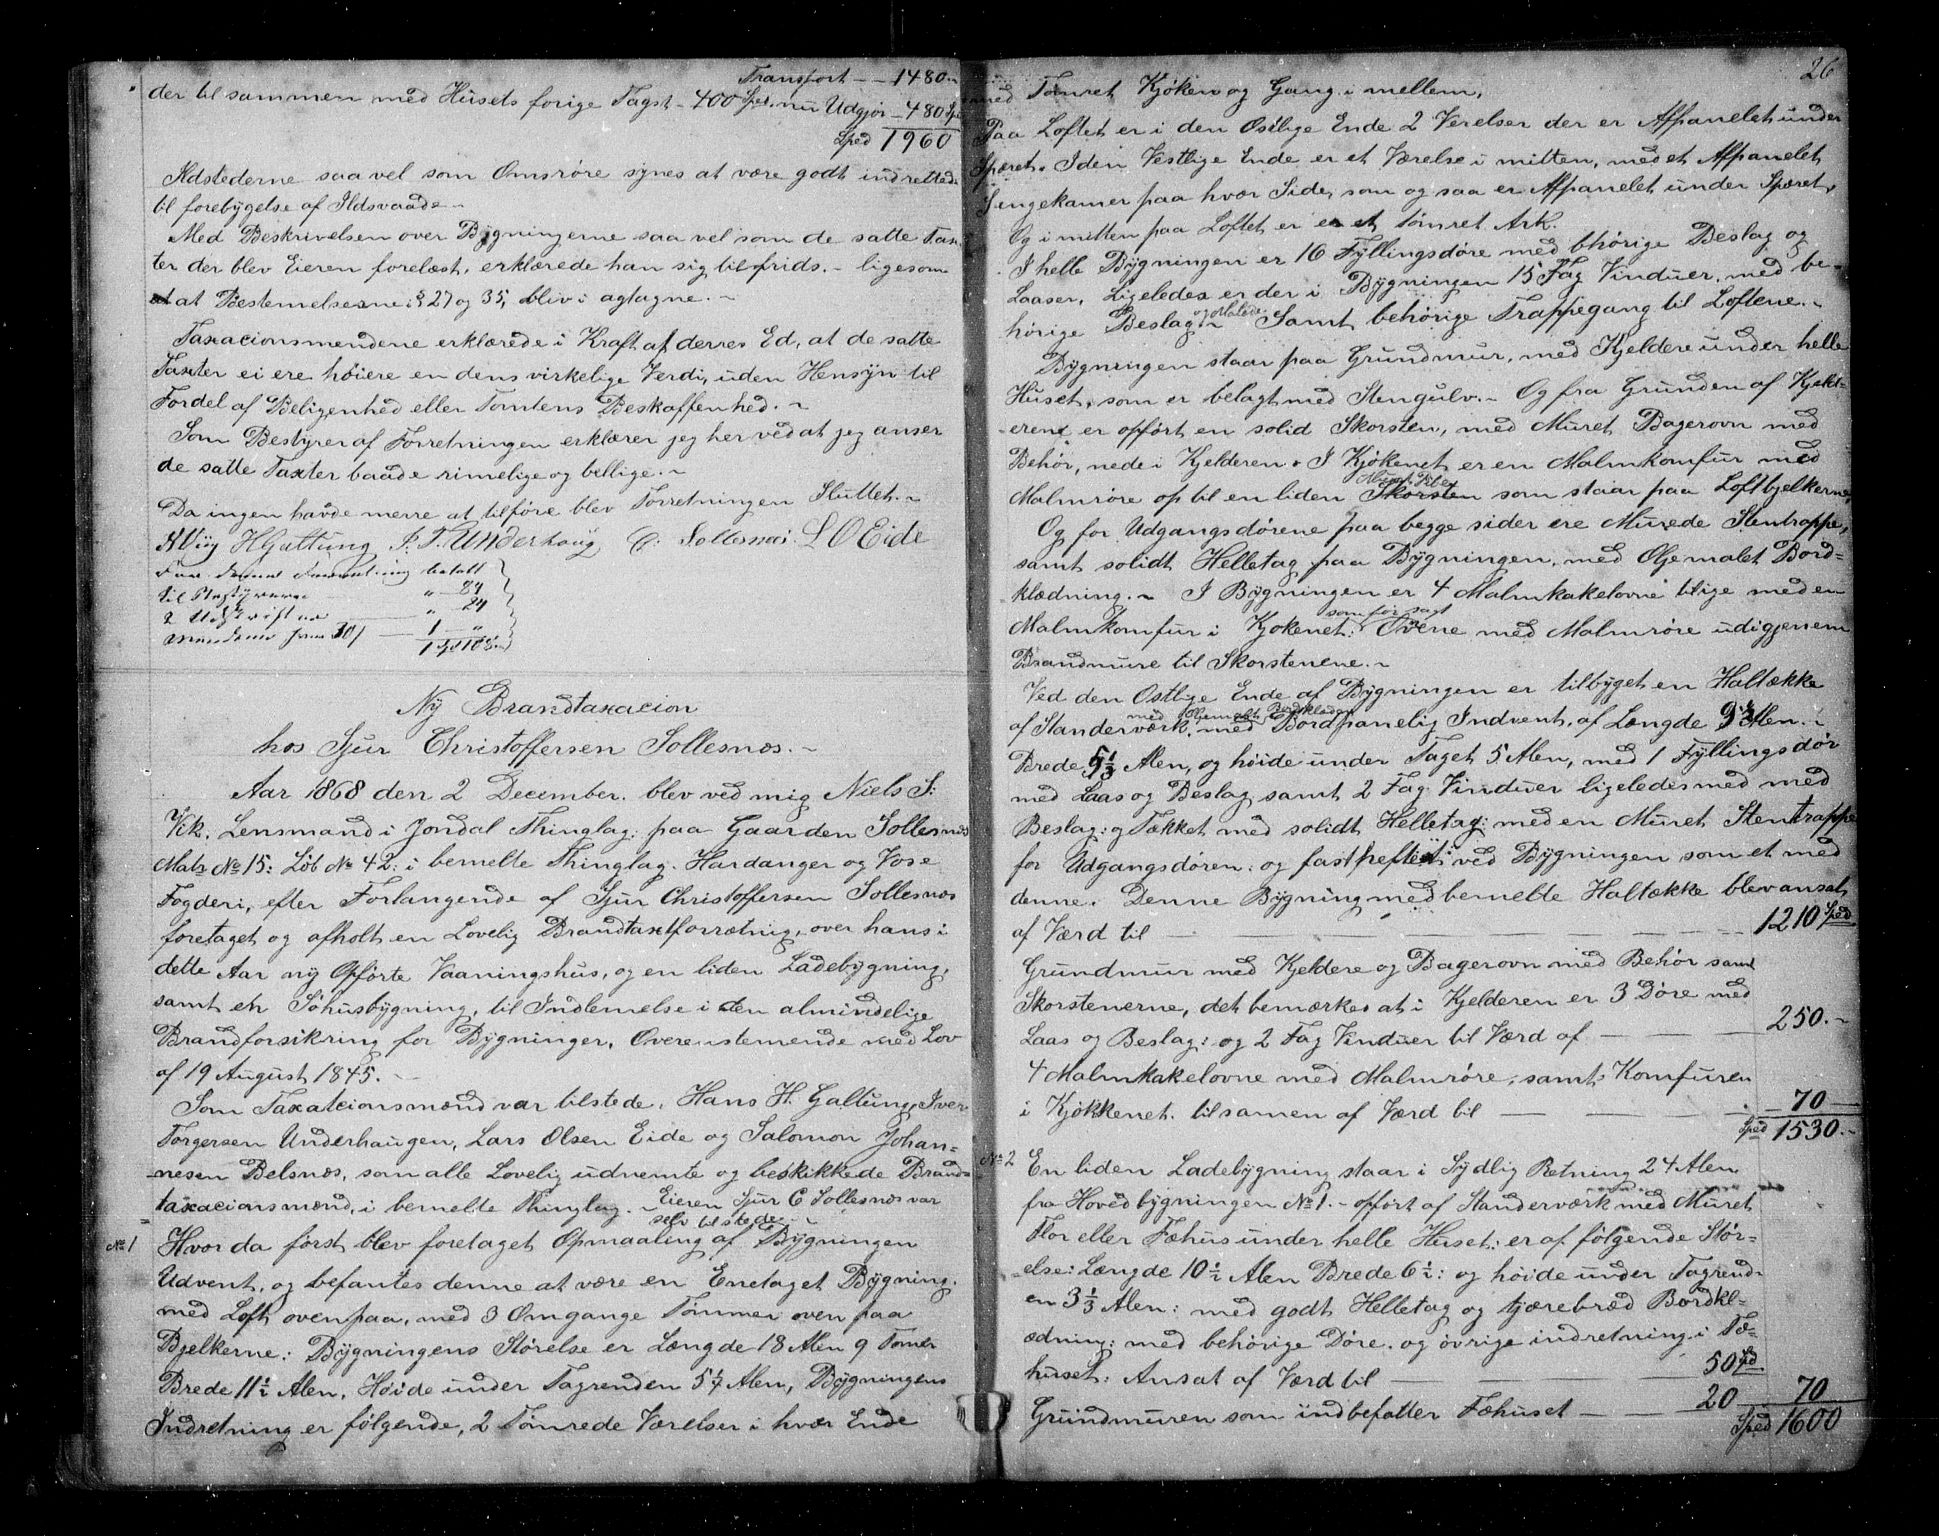 Transport — 1480.-
der til sammen med Husets forige Tagst - 400 Spd. nu Udgjør — 480 Spd
Sped 1960
Ildstederne saa vel som Omsrøre synes at være godt indrettede
til forebygelse af Ildsvaade.-
Med Beskrivelsen over Bygningerne saa vel som de satte Tax-
ter der blev Eieren forelæst, erklærede han sig tilfrids. - ligesom
at Bestemelserne i § 27 og 35, bliv i agtagne. -
Taxacionsmendene erklærede i Kraft af derres Ed, at de satte
Taxter ei ere høiere en dens virkelige Verdi, uden Hensyn til
Fordel af Beligenhed eller Tomtens Beskaffenhed. -
Som Bestyrer af Forretningen erklærer jeg her ved at jeg anser
de satte Taxter baade rimelige og billige. -
Da ingen havde merre at tilføre blev Forretningen Sluttet. -
NViig HGaltung I. T. Underhaug C. Sollesnæs L O Eide
For denne Forretning betalt
til Bestyreren " 84
2 Udskrifter " 24
Mændene 1 "
1 Spd 108.
Ny Brandtaxacion
hos Sjur Christoffersen Sollesnæs. -
Aar 1868 den 2 December. blev ved mig Niels S:
Vik. Lensmand i Jondal Thinglag: paa Gaarden Sollesnæs
Mats No 15: Løb No 42: i bemelte Thinglag. Hardanger og Vose
Fogderi, efter Forlangende af Sjur Christoffersen Sollesnæs
foretaget og afholt en Lovelig Brandtaxtforrætnig, over hans i
dette Aar ny Opførte Vaaningshus, og en liden Ladebygning,
samt en Søhusbygning, til Indlemelse i den almindelige
Brandforsikring for Bygninger, Overenstemende med Lov
af 19 August 1845. -
Som Taxatcionsmænd var tilstede, Hans H. Galtung, Iver
Torgersen Underhaugen, Lars Olsen Eide og Salomon Johan-
-nesen Belsnæs, som alle Lovelig udnemte og beskikkede Brand-
taxacionsmænd, i bemelte Thinglag. - Eieren Sjur C Sollesnæs var
selv tilstede -
No 1 Hvor da først blev foretaget Opmaaling af Bygningen
Udvent, og befantes denne at være en Enetaget Bygning.
med Loft ovenpaa, med 3 Omgange Tømmer oven paa
Bjelkerne: Bygningens Størelse er Længde 18 Alen 9 Tomer
Brede 11½ Alen, Høide under Tagrenden 5¼ Alen, Bygningens
Indretning er følgende, 2 Tømrede Værelser i hvær Ende
26
med Tømret Kjøken og Gang i mellem,
Paa Loftet er i den Østlige Ende 2 Verelser der er Afpanelet under
Spæret. I den Vestlige Ende er et Værelse i mitten, med et Afpanelet
Sengekamer paa hvær Side, som og saa er Afpanelet under Spæret,
Og i mitten paa Loftet er et tømret Ark.
I helle Bygningen er 16 Fyllingsdøre med bhørige Beslag og
Laaser, Ligeledes er der i Bygningen 15 Fag Vinduer, med be-
hørige Beslag - og Malede Samt behørige Trappegang til Loftene. -
Bygningen staar paa Grundmur, med Kjeldere under helle
Huset, som er belagt med Stengulv. - Og fra Grunden af Kjeld-
-erene er opført en solid Skorsten, med Muret Bagerovn med
Behør, nede i Kjelderen. I Kjøkenet er en Malmkomfur med
Malmrøre op til en liden Muret Pibe Skorsten som staar paa Loftbjelkerne,
Og for Udgangsdørene paa begge sider ere Murede Stentrappe,
samt solidt Helletag paa Bygningen, med Oljemalet Bord-
klædning. - I Bygningen er 4 Malmkakelovne lige med en
Malmkomfur i Kjøkenet: som før sagt Ovene med Malmrøre udigjenem
Brandmure til Skorstenene. -
Ved den Østlige Ende af Bygningen er tilbyget en Haltække
af Standerværk, med Oljemalt Bordklædn Bordpanelig Indvent, af Længde 9½ Alen. -
Brede 5⅓ Alen, og høide under Taget 5 Alen, med 1 Fyllingsdør
med Laas og Beslag samt 2 Fag Vinduer ligeledes med med
Beslag: og Tækket med solidt Helletag: med en Muret Stentrappe
for Udgangsdøren: og fastheftet ved Bygningen som et med
denne. Denne Bygning med bemelte Haltække blev ansat
af Værd til — 1210 Sped
Grundmur med Kjeldere og Bagerovn med Behør samt
Skorstenerne, det bemærkes at i Kjelderen er 3 Døre med
Laas og Beslag: og 2 Fag Vinduer til Værd af — 250.-
4 Malmkakelovne med Malmrøre, samt Komfuren
i Kjøkkenet. tilsamen af Værd til — 70
Sped 1530.-
No 2 En liden Ladebygning staar i Sydlig Retning 24 Alen
fra Hovedbygningen No 1. - opført af Standerværk med Muret
Flor eller Fæhus under helle Huset: er af følgende Stør-
-else: Længde 10½ Alen Brede 6½: og høide under Tagrend-
en 3⅓ Alen: med godt Helletag og tjærebræd Bordkl-
ædning: med behørige Døre. og øvrige indretning i Fæ-
huset: Ansat af Værd til — 50 Spd
Grundmuren som indbefatter Fæhuset — 20 — 70
Sped 1600